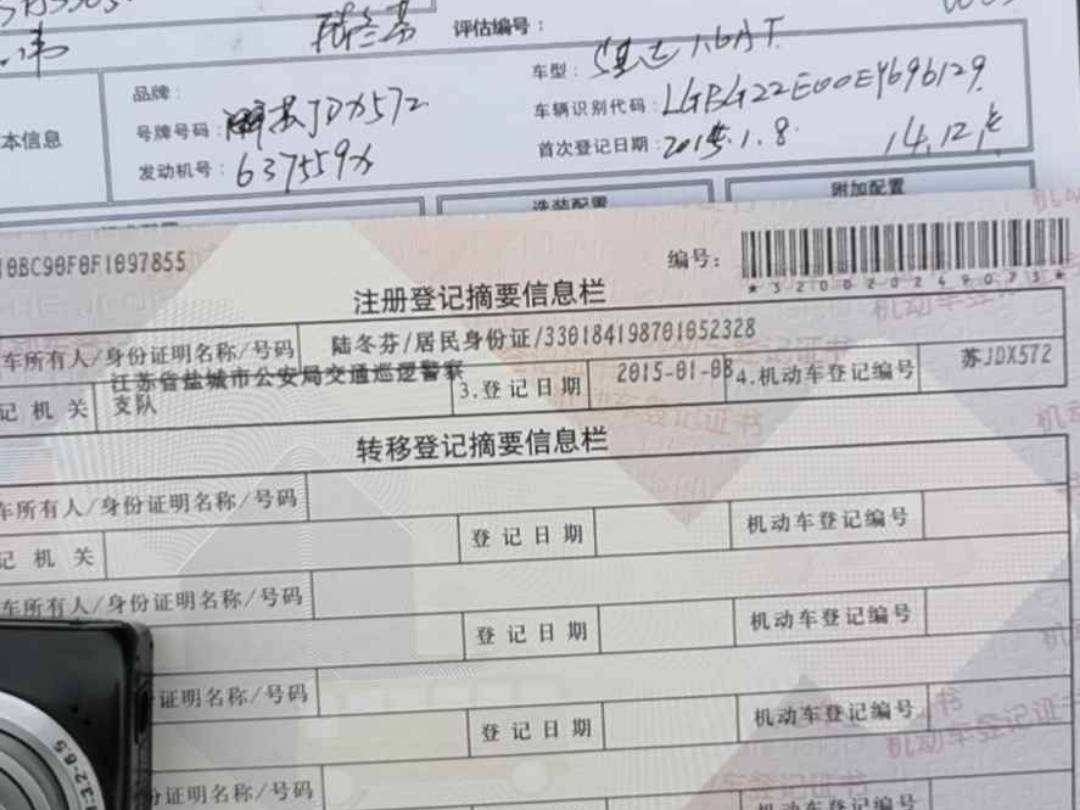 评估编号：
品牌：
车型： 1.6AT
号牌号码：苏JDX572
车辆识别代码：LGBG22E00EY696129
本信息
发动机号：637559X
首次登记日期：2015.1.8. 14.12
选装配置
附加配置
10BC90F0F1097855
编号：
*320020249073*
注册登记摘要信息栏
车所有人/身份证明名称/号码 陆冬芬/居民身份证/330184198701052328
记机关 江苏省盐城市公安局交通巡逻警察支队 3.登记日期 2015-01-08 4.机动车登记编号 苏JDX572
转移登记摘要信息栏
车所有人/身份证明名称/号码
记机关 登记日期 机动车登记编号
车所有人/身份证明名称/号码
登记日期 机动车登记编号
证明名称/号码
登记日期 机动车登记编号
份证明名称/号码
机动车登记编号